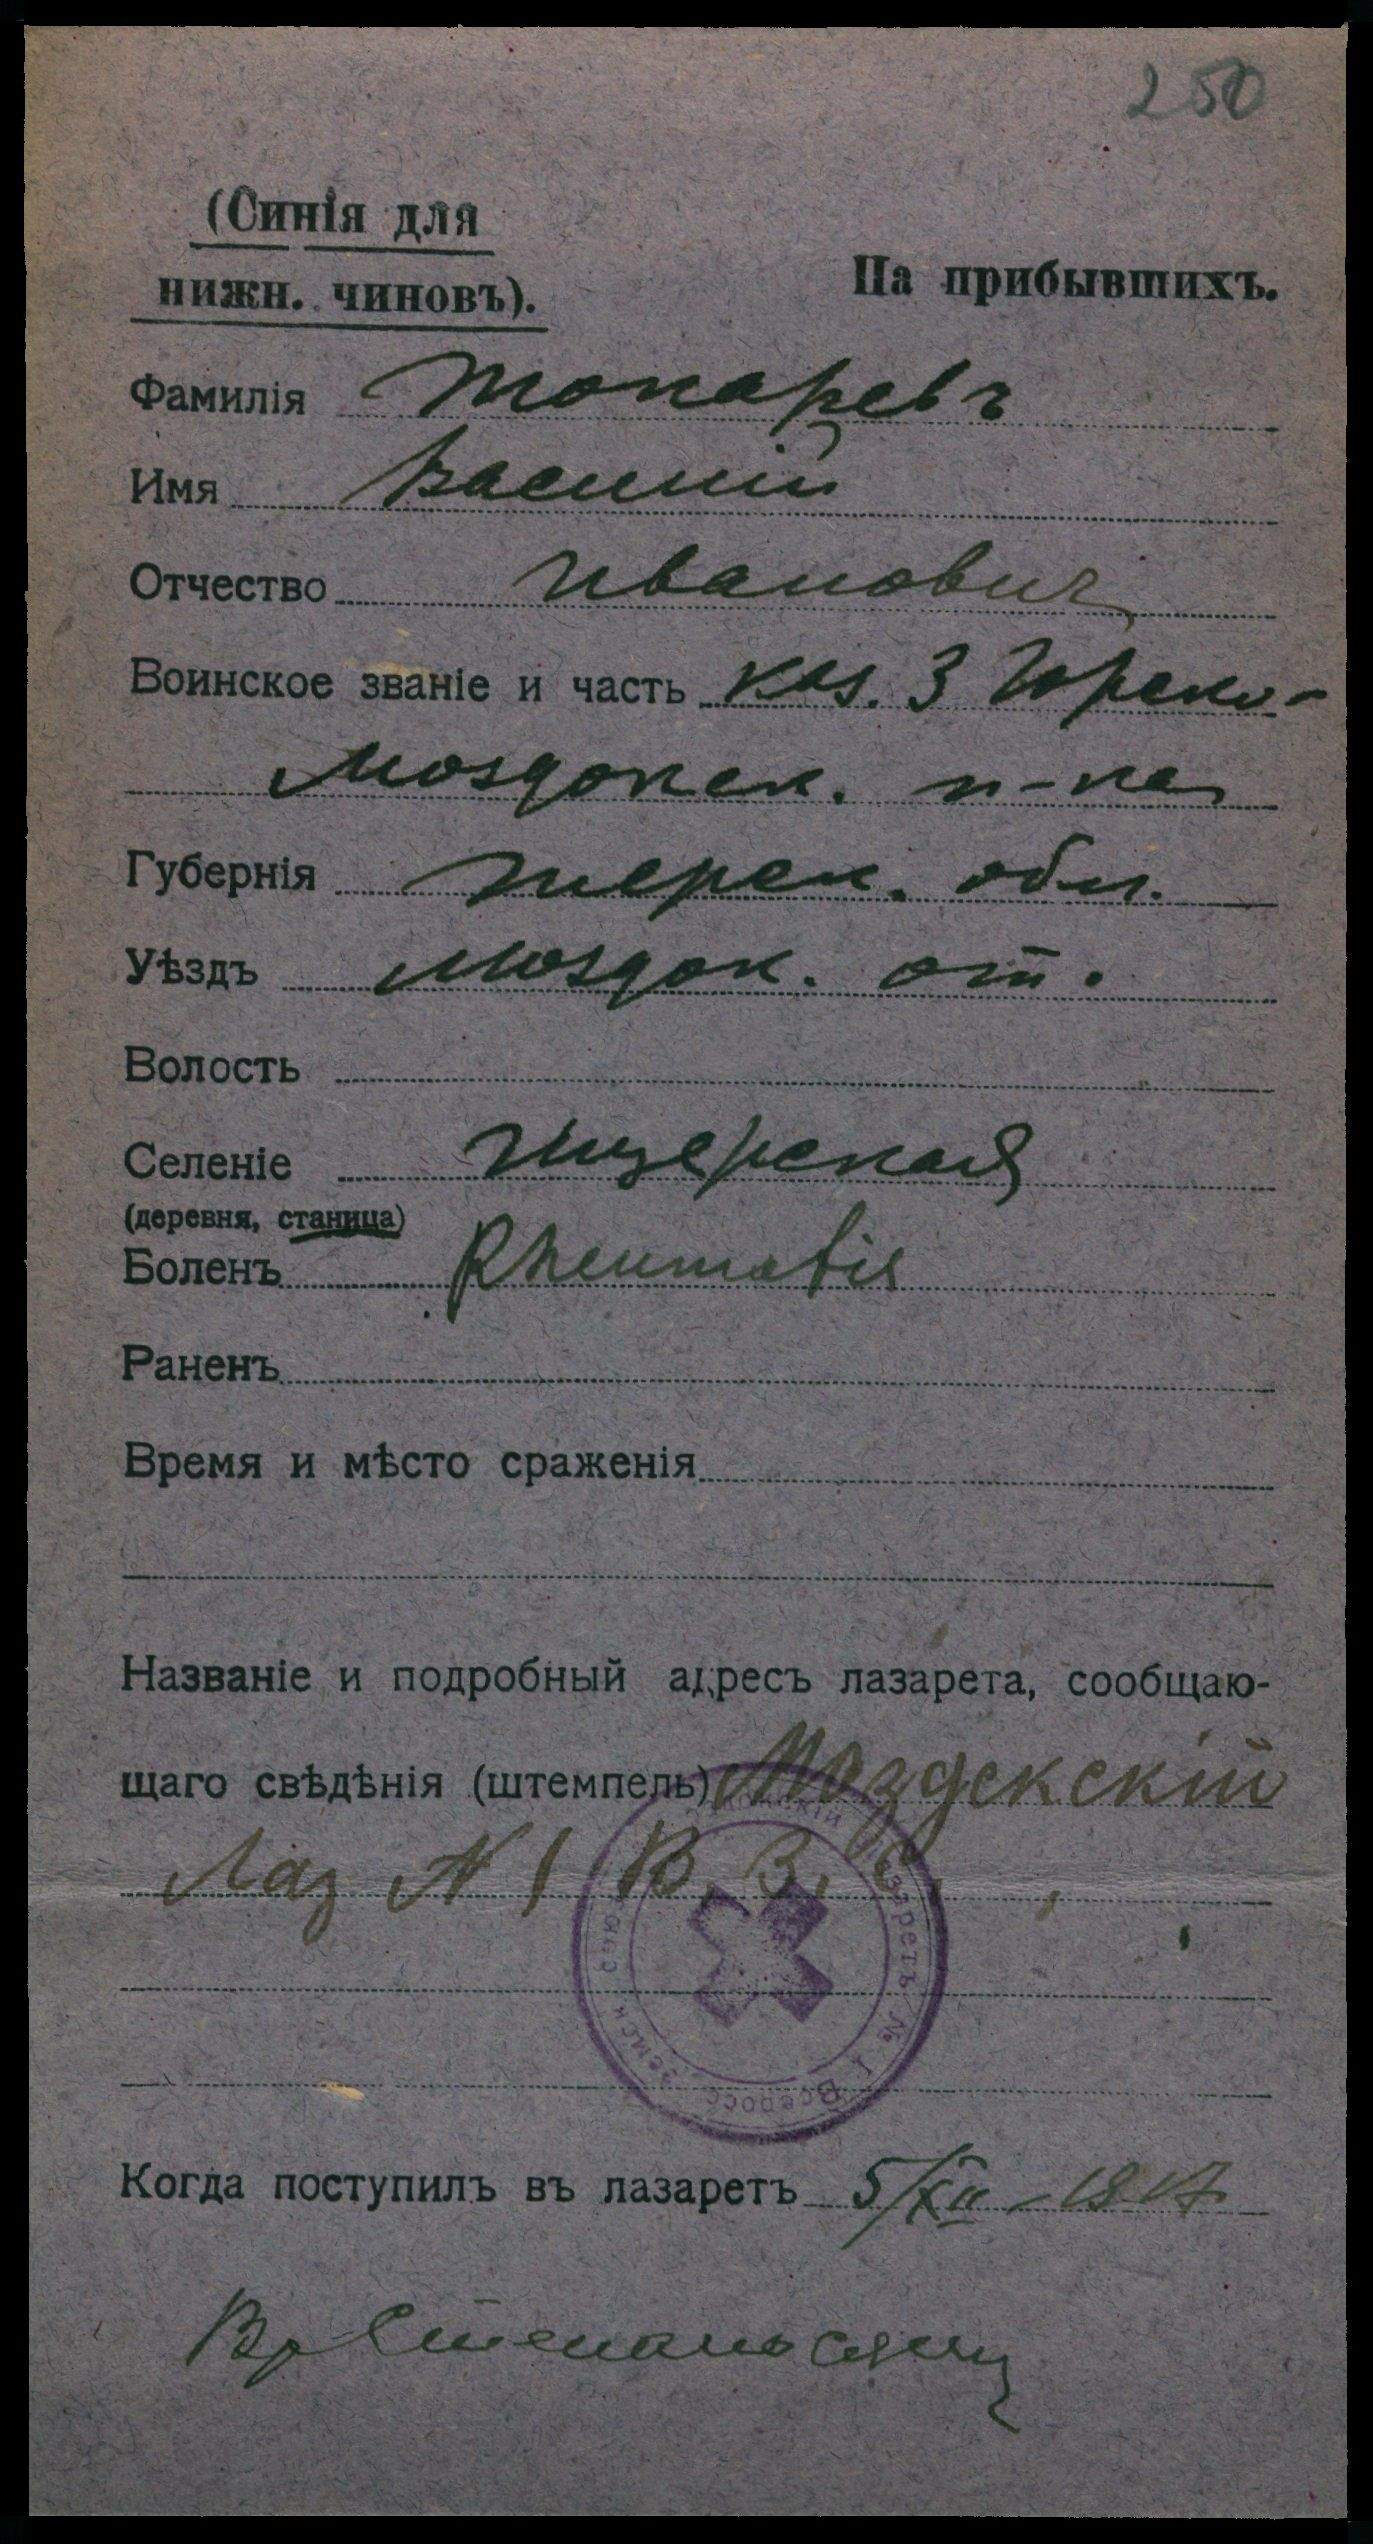 250
(Синія для
нижн. чиновъ).
На прибывшихъ.
Фамилія Токаревъ
Имя Василій
Отчество Иванович
Воинское званіе и часть каз. 3 Горско-
Моздокск. п-ка
Губернія Терск. обл.
Уѣздъ Моздок. от.
Волость
Селеніе Ищерская
(деревня, станица)
Боленъ Rheumatis
Раненъ
Время и мѣсто сраженія
Названіе и подробный адресъ лазарета, сообщаю-
щаго свѣдѣнія (штемпель) Моздокскій
Лаз N 1 В. З. С.
Лазаретъ № 1 Всеросс. Земск. Союза
Когда поступилъ въ лазаретъ 5/XII - 1917
Вр Степаносянц